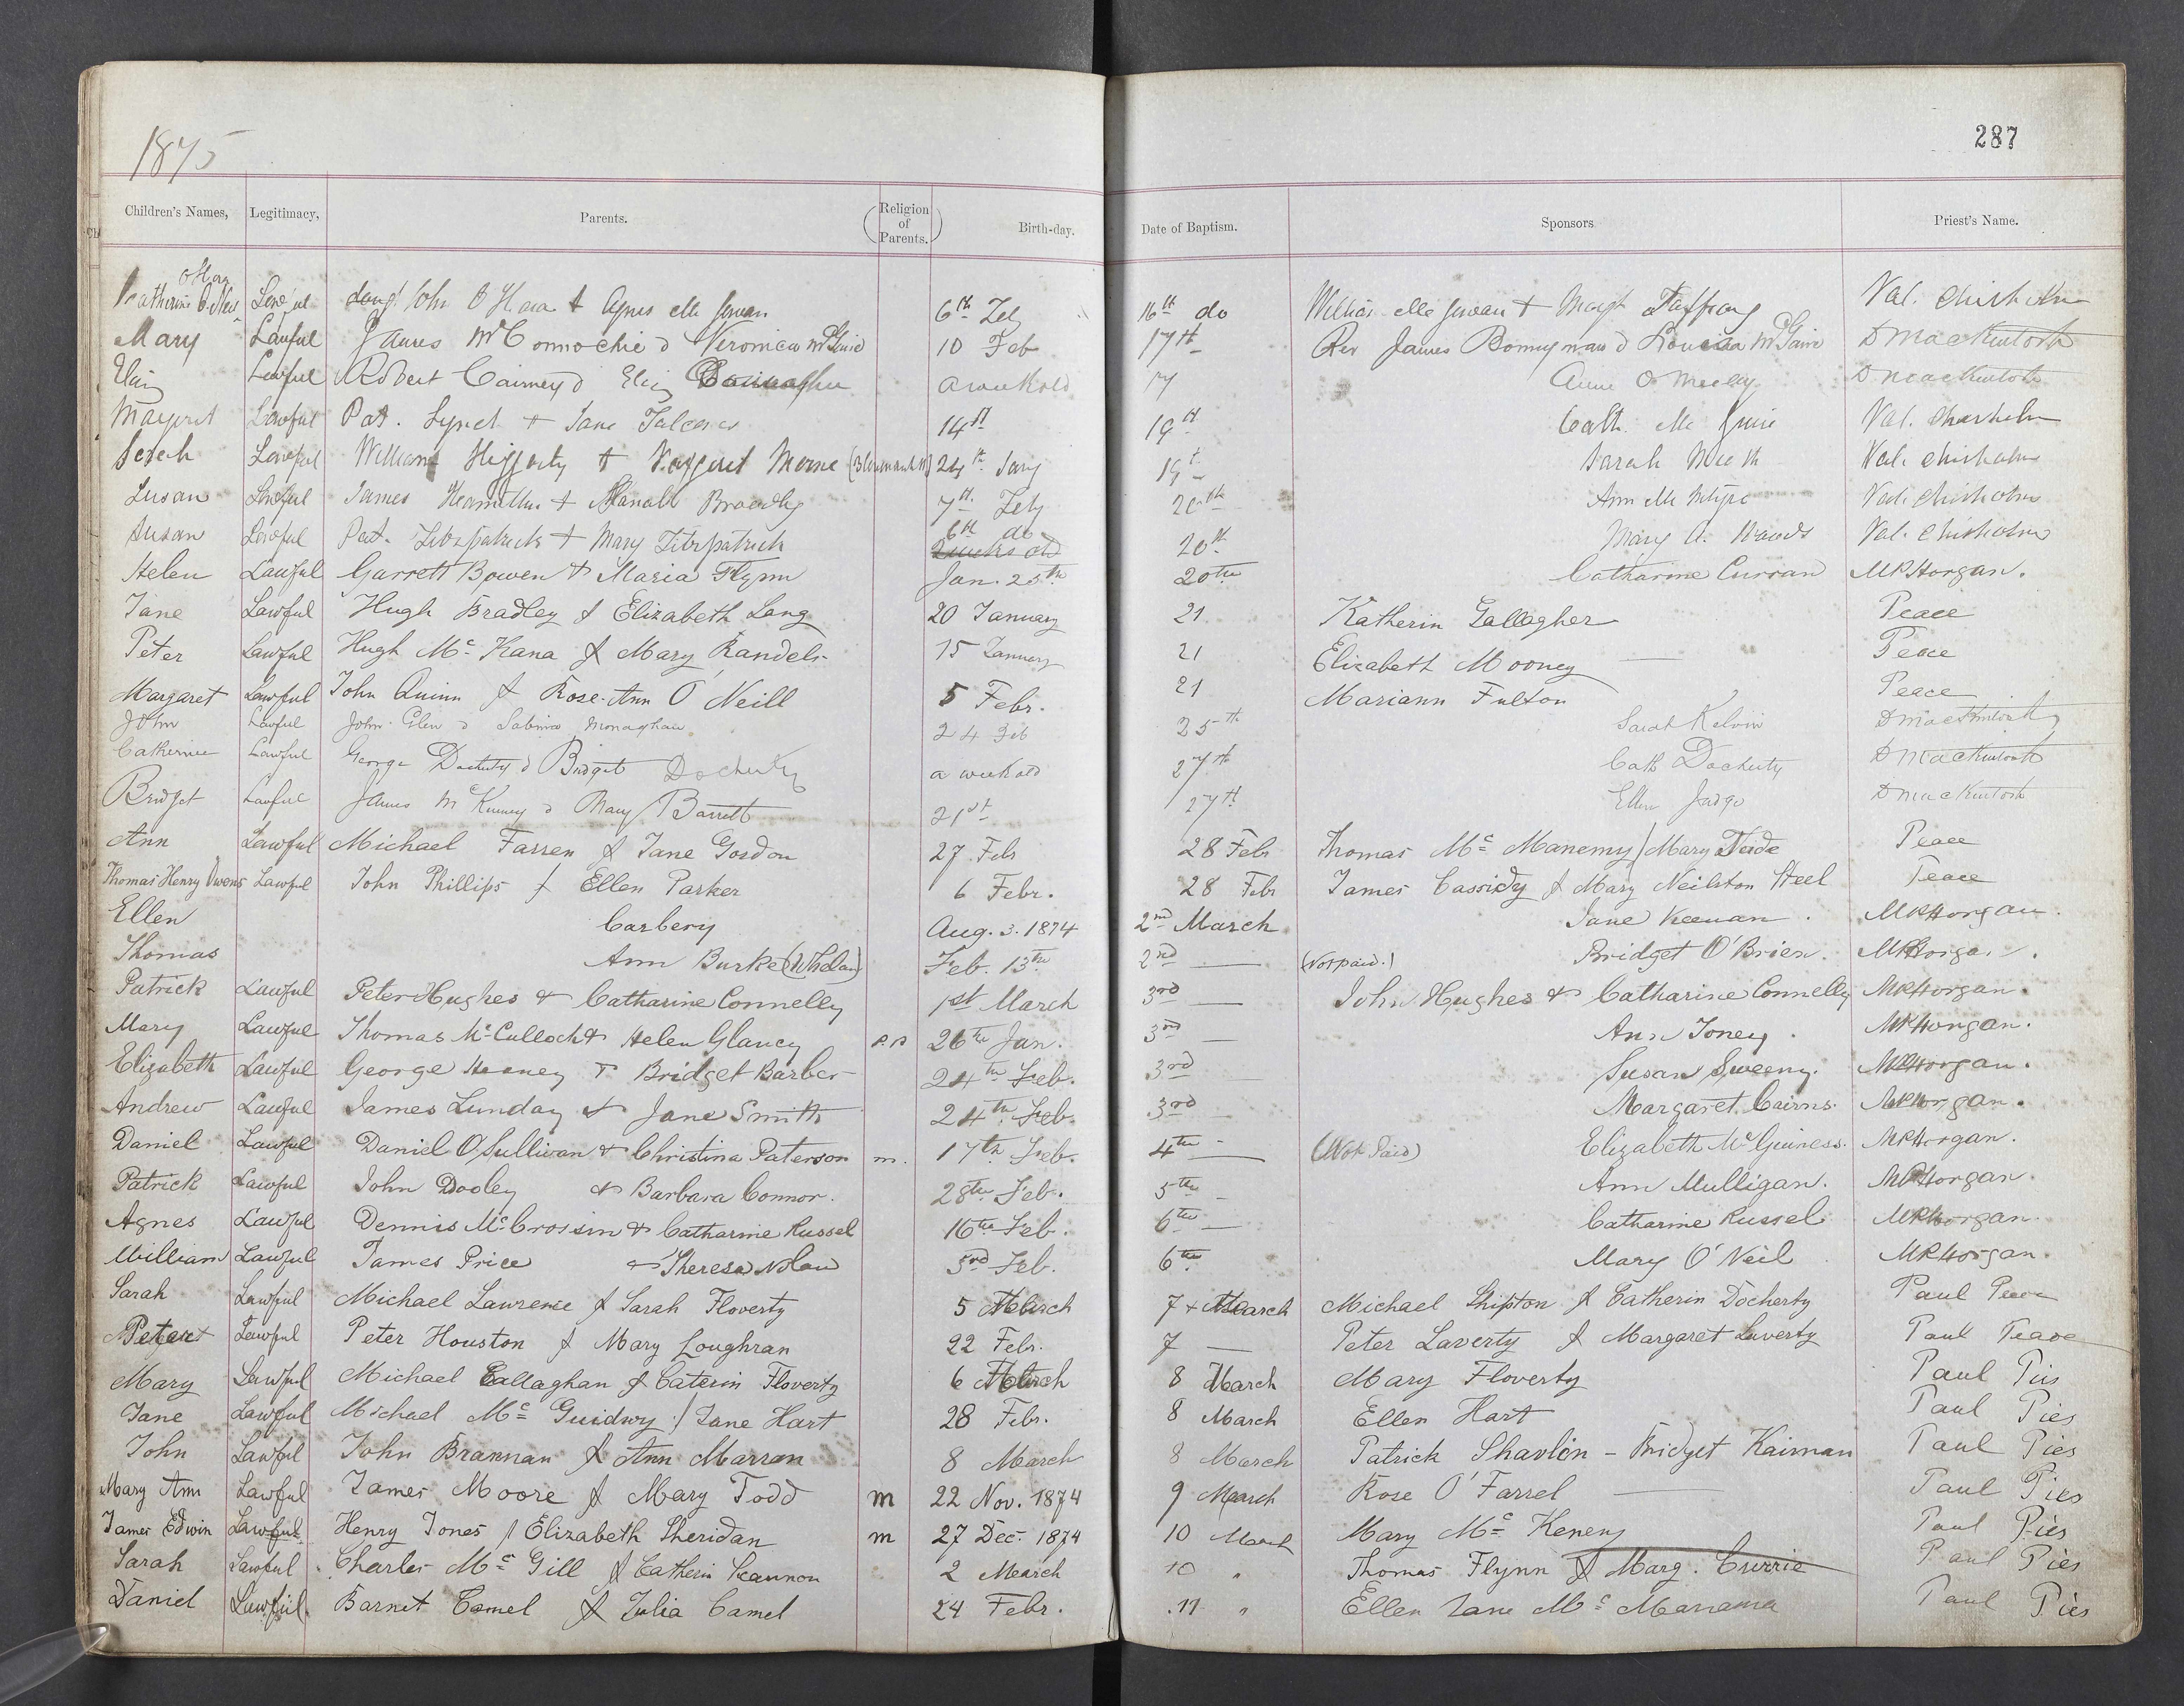 1875
287
Children's Names, Legitimacy, Parents. (Religion of Parents.) Birth-day. Date of Baptism. Sponsors Priest's Name.
O'Hara
Catherine Lawful John O'Hara & Agnes 6th Feb 16th do & Val. Chisholm
Mary Lawful James McConnochie & Veronica McGuire 10 Feb 17th Rev James & Louisa McGuire D MacKintosh
Eliz Lawful Robert Cairney & Eliz a week old 17 Anne O D MacKintosh
Margaret Lawful Pat. Lynch & Jane 14th 19th Cath. Mc Guire Val. Chisholm
Lawful William & Margaret 24th Jany 19t Sarah Val. Chisholm
Susan Lawful James Hamilton & 7th Feby 20th Ann Mc Intyre Val. Chisholm
Susan Lawful Pat. Fitzpatrick & Mary Fitzpatrick 2 weeks old 6th do 20th Mary A. Woods Val. Chisholm
Helen Lawful Garrett Bowen & Maria Flynn Jan. 25th 20th Catharine Curran MPHorgan.
Jane Lawful Hugh Bradley & Elizabeth Lang 20 January 21 Katherin Gallagher Peace
Peter Lawful Hugh Mc Kana & Mary Randels 15 January 21 Elizabeth Mooney — Peace
Margaret Lawful John Quinn & Rose-Ann O'Neill 5 Febr. 21 Mariann Fulton Peace
John Lawful John Glen & Sabina Monaghan 24 Feb 25th Sarah Kelvin D MacKintosh
Catherine Lawful George Docherty & Bridget Docherty a week old 27th Cath Docherty D MacKintosh
Bridget Lawful James McKinney & Mary Barrett 21st 27th Ellen Judge D MacKintosh
Ann Lawful Michael Farren & Jane Gordon 27 Febr 28 Febr Thomas Mc Manemy / Mary Peace
Thomas Henry Owens Lawful John Phillips & Ellen Parker 6 Febr. 28 Febr James Cassidy & Mary Neilston Steel Peace
Ellen Carbery Aug. 3. 1874 2nd March Jane Keenan. MPHorgan.
Thomas Ann Burke (Whelan) Feb. 13th 2nd — (Not paid.) Bridget O'Brien. MPHorgan.
Patrick Lawful Peter Hughes & Catharine Connelly 1st March 3rd — John Hughes & Catharine Connelly MPHorgan.
Mary Lawful Thomas McCulloch & Helen Glancy 26th Jan. 3rd — Ann Toney. MPHorgan.
Elizabeth Lawful George Heaney & Bridget Barber 24th Feb. 3rd — Susan Sweeny. MPHorgan.
Andrew Lawful James Lunday & Jane Smith 24th Feb. 3rd — Margaret Cairns. MPHorgan.
Daniel Lawful Daniel O'Sullivan & Christina Paterson m. 17th Feb. 4th — (Not Paid) Elizabeth McGuiness. MPHorgan.
Patrick Lawful John Dooley & Barbara Connor. 28th Feb. 5th — Ann Mulligan. MPHorgan.
Agnes Lawful Dennis McCrossin & Catharine Russel 16th Feb. 6th — Catharine Russel MPHorgan.
William Lawful James Price & Theresa Nolan 3rd Feb. 6th. Mary O'Neil MPHorgan.
Sarah Lawful Michael Lawrence & Sarah Floverty 5 March 7 March Michael Shipton & Catherin Docherty Paul Peace
Peter Lawful Peter Houston & Mary Loughran 22 Febr. 7 — Peter Laverty & Margaret Laverty Paul Peace
Mary Lawful Michael Callaghan & Caterin Floverty 6 March 8 March Mary Floverty Paul Pies
Jane Lawful Michael Mc Guidwy / Jane Hart 28 Febr. 8 March Ellen Hart Paul Pies
John Lawful John Brannan & Ann Marran 8 March 8 March Patrick Shavlin - Bridget Kairnan Paul Pies
Mary Ann Lawful James Moore & Mary Todd m 22 Nov. 1874 9 March Rose O'Farrel — Paul Pies
James Edwin Lawful Henry Jones / Elizabeth Sheridan m 27 Dec. 1874 10 March Mary Mc Keneny Paul Pies
Sarah Lawful Charles Mc Gill & Catherin Scannon 2 March 10 " Thomas Flynn & Marg. Currie Paul Pies
Daniel Lawful. Barnet Camel & Julia Camel 24 Febr. 11 " Ellen Jane Mc Manama Paul Pies